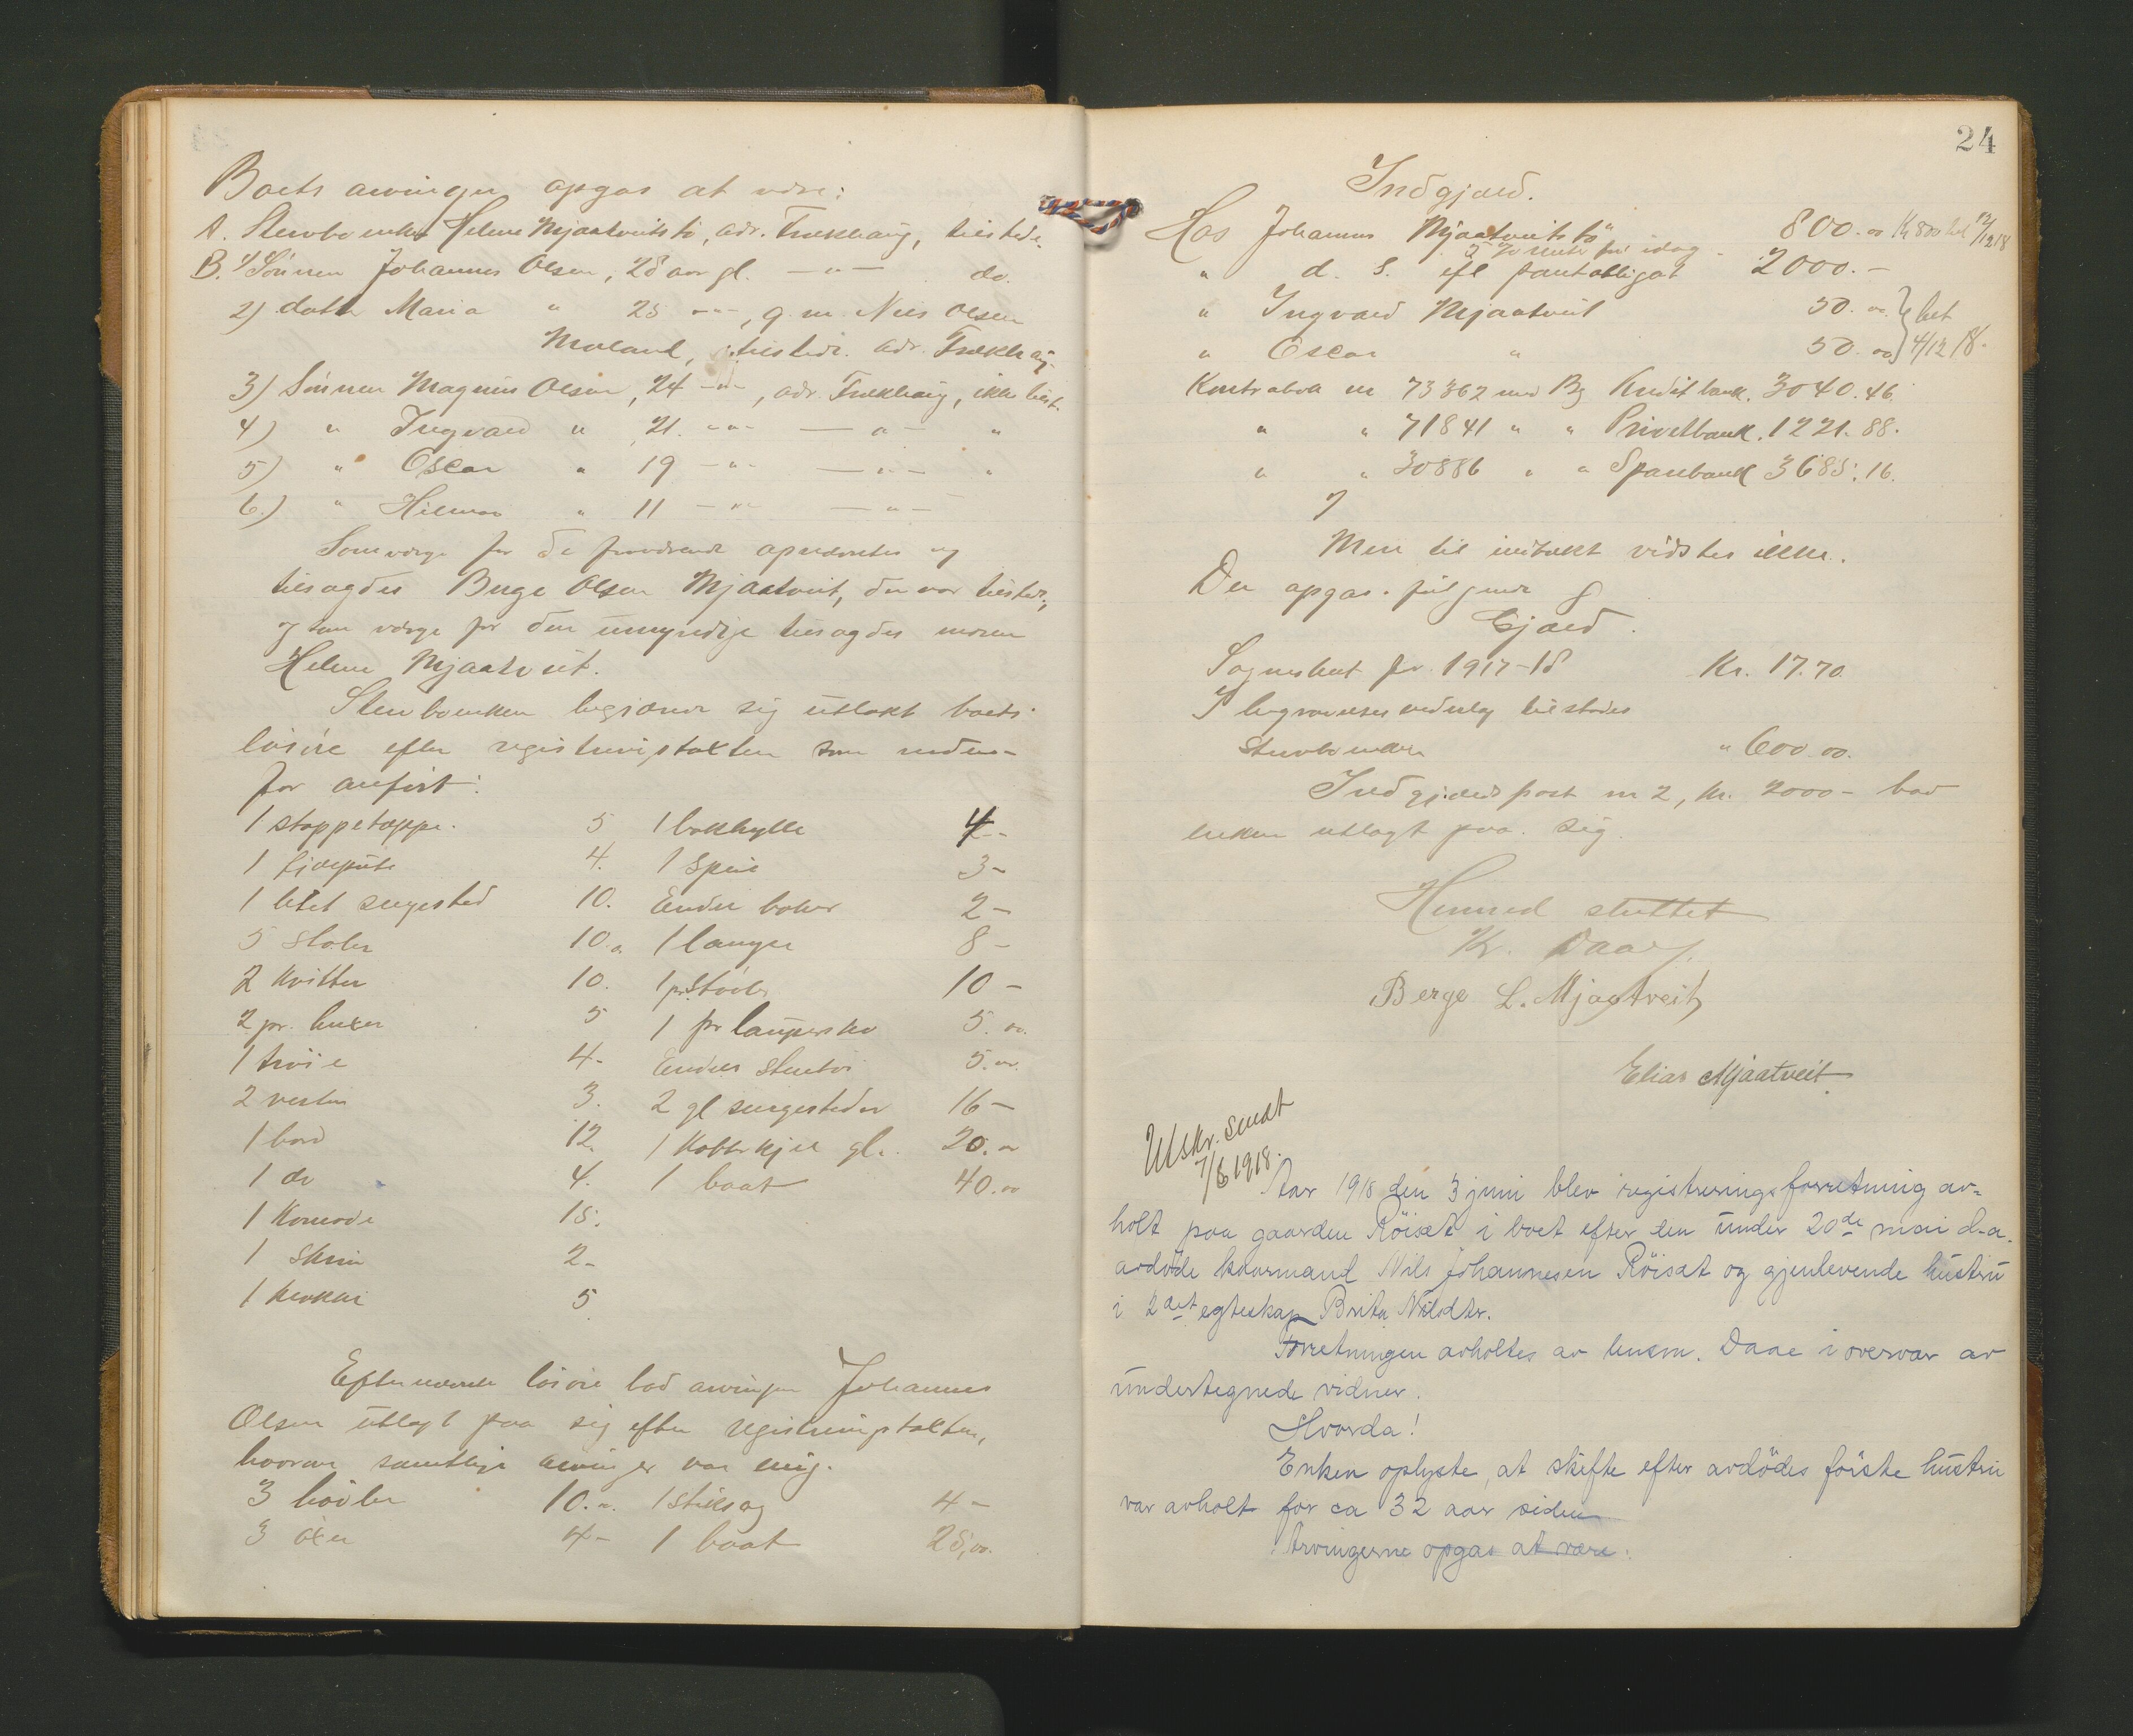 Boets arvinger opgas at være:
A. Stervboenke Helene Mjaatveitstø, adr. Frekhaug, tilstede.
B. 1/ Sønnen Johannes Olsen, 28 aar gl. —"— do.
2) datter Maria " 25 —"—, g. m. Nils Olsen
Moland, tilstede. adr. Frekhaug
3) Sønnen Magnus Olsen, 24 —"—, adr. Frekhaug, ikke tilst.
4) " Ingvald " 21. —"— —"— "
5) " Oscar " 19 —"— —"— "
6.) " Hilmar " 11 —"— —"—
Som værge for de fraværende opnævntes og
tilsagdes Berge Olsen Mjaatveit, der var tilstede,
og som værge for den umyndige tilsagdes moren
Helene Mjaatveit.
Stervboenken begjærer sig utlakt boets
løsøre efter registreringstaksten som neden-
for anført:
1 stoppetæppe. 5 1 bokhylle 4-
1 fjærpute 4. 1 speil 3-
1 litet sengested 10. Endel bøker 2-
5 stoler 10.- 1 lampe 8-
2 kvitler 10. 1 pr. støvler 10-
2 pr. buxer 5 1 pr laupersko 5.oo.
1 trøie 4- Endel stentøi 5.oo.
2 vester 3. 2 gl sengesteder 16-
1 bord 12. 1 Kobberkjel gl. 20.oo
1 do 4. 1 baat 40.oo
1 Komode 15.
1 Skrin 2-
1 5
Efternævnte løsøre bad arvingen Johannes
Olsen utlagt paa sig efter registreringstaksten,
hvorom samtlige arvinger var enig.
3 høvler 10.oo. 1 stiksag 4-
3 øxer 4- 1 baat 25,oo.
24
Indgjæld.
Hos Johannes Mjaatveitstø 800.oo Kr 800 bet 12/12 18
5 % rente fra idag
" d. S. efl pantobligat 2000.-
" Ingvald Mjaatveit 50.oo. } bet
" Oscar " 50.oo } 4/12 18.
Kontrabok nr 73362 med Bg Kreditbank. 3040.46.
" " 71841 " " Privatbank. 1221.88.
" " 30886 " " Sparebank 3685.16.
Mere til indtækt vidstes ikke.
Der opgas følgende
Gjæld.
Sogneskat for 1917-18 Kr. 17.70.
I begravelsesvederlag tilstodes
Stervboenken " 600.oo.
Indgjældspost nr 2, kr. 2000- bad
enken utlagt paa sig.
Hermed sluttet
Kr. Daae.
Berge L. Mjaatveit
Elias Mjaatveit
Utskr. sendt
7/6 1918.
Aar 1918 den 3 juni blev registreringsforretning av-
holt paa gaarden Röisæt i boet efter den under 20de mai d.a.
avdöde kaarmand Nils Johannesen Röisæt og gjenlevende hustru
i 2det egteskap Brita Nilsdtr.
Forretningen avholtes av lensm. Daae i overvær av
undertegnede vidner.
Hvorda!
Enken oplyste, at skifte efter avdödes förste hustru
var avholt for ca 32 aar siden
Arvingerne opgas at være: